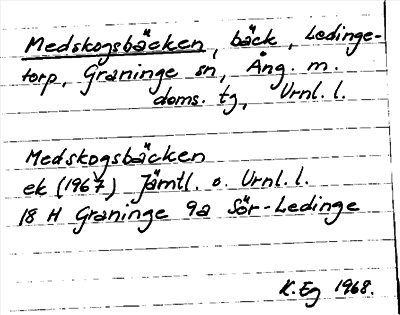 Medskogsbäcken, bäck, Ledinge-
torp, Graninge sn, Ång. m.
doms. tg, Vrnl. l.
Medskogsbäcken
ek (1967) Jämtl. o. Vrnl. l.
18 H Graninge 9a Sör-Ledinge
K. Eg 1968.